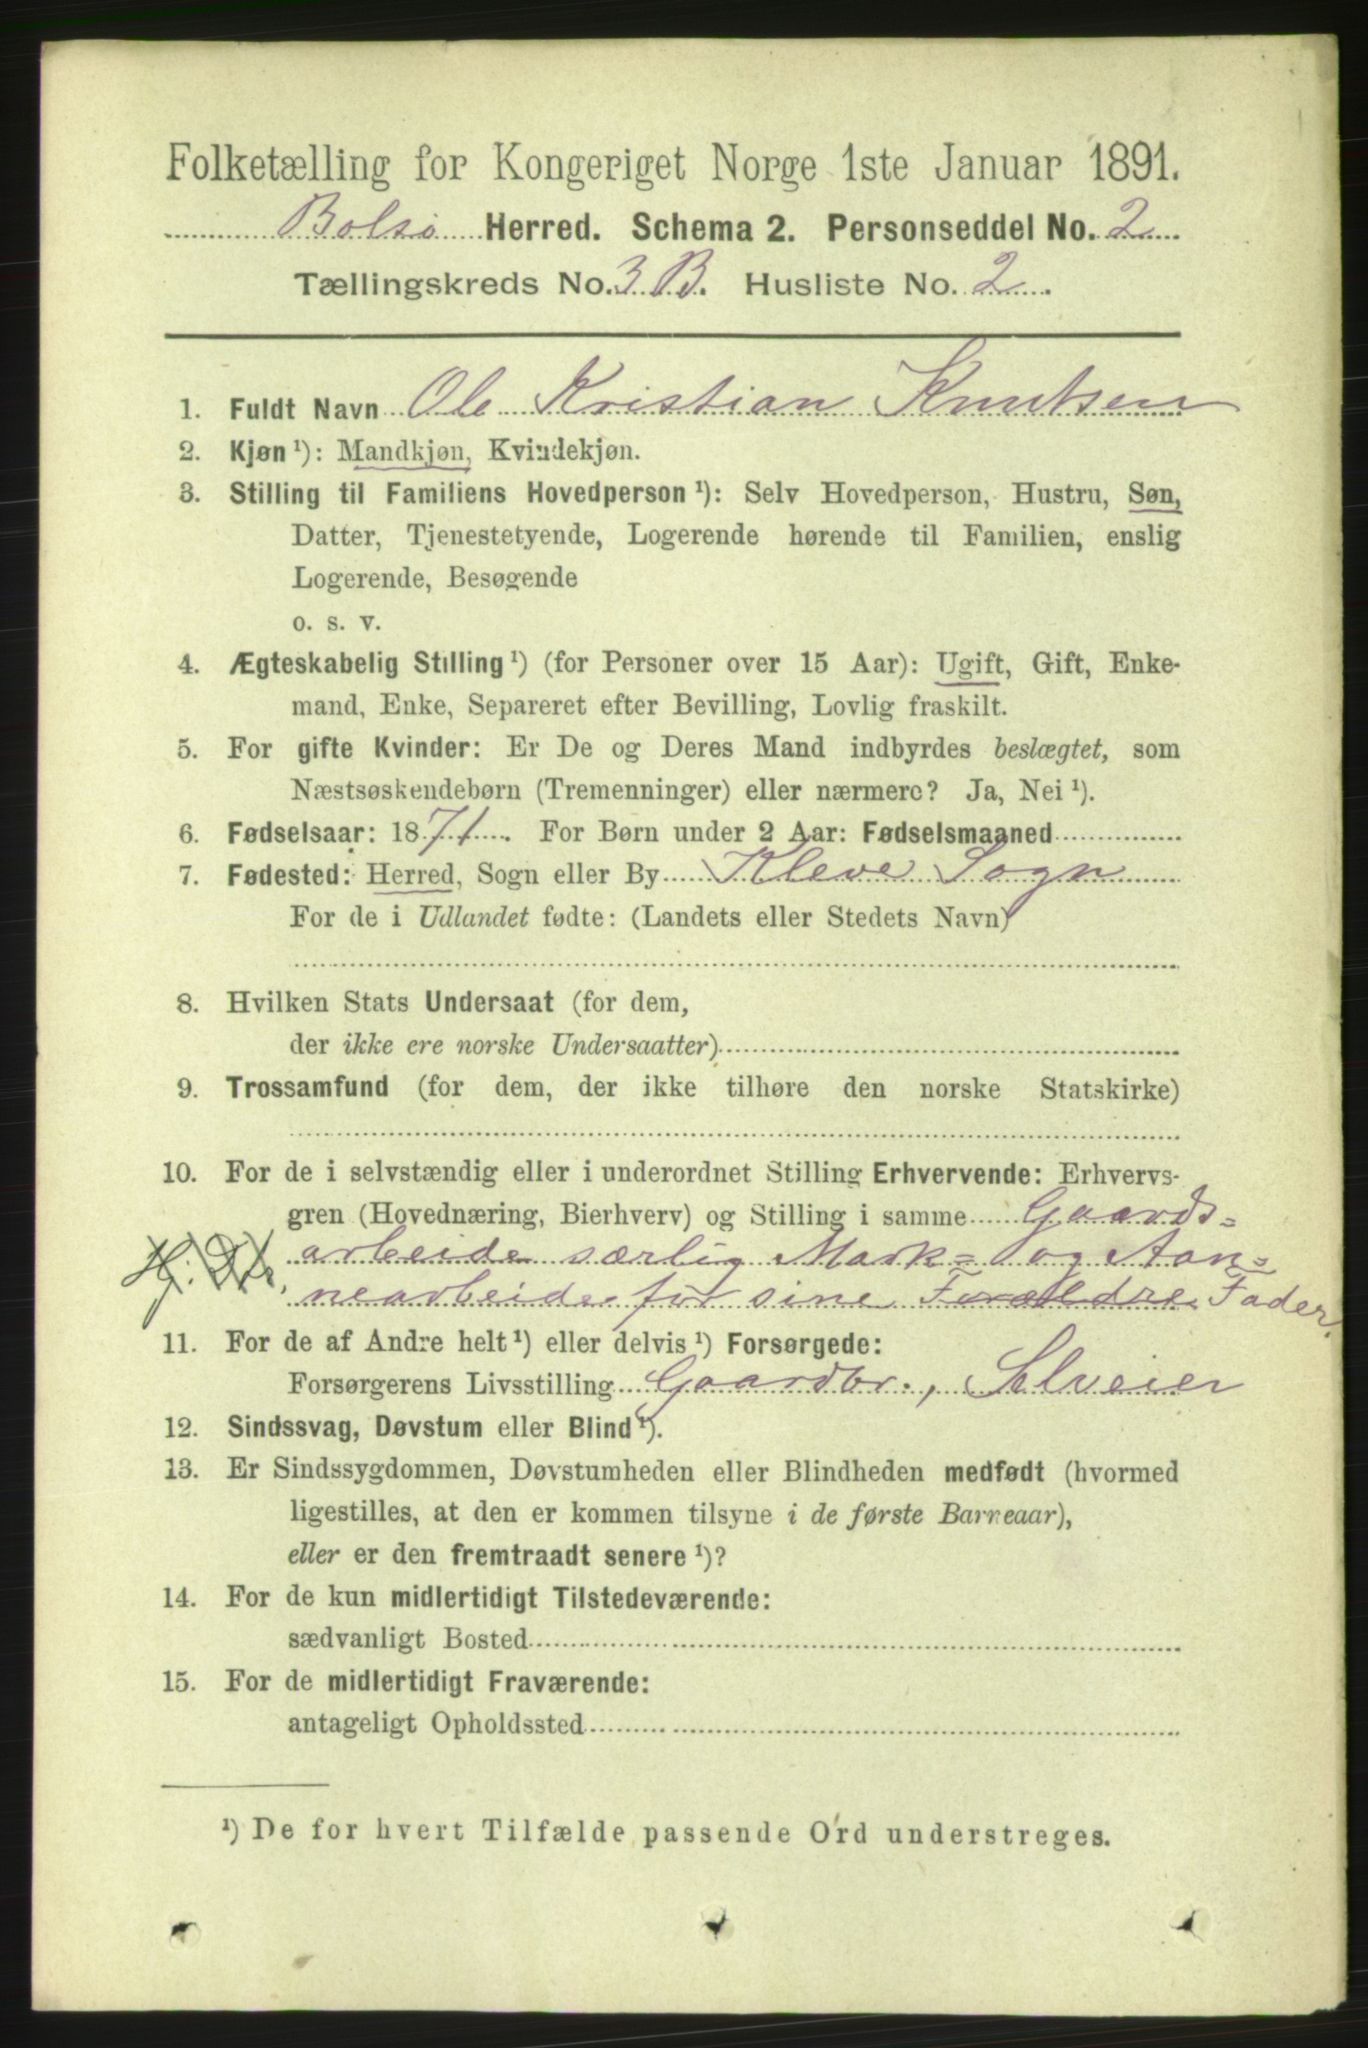 Folketælling for Kongeriget Norge 1ste Januar 1891.
Bolsø Herred. Schema 2. Personseddel No. 2
Tællingskreds No. 3 B. Husliste No. 2
1. Fuldt Navn Ole Kristian Knutsen
2. Kjøn ¹): Mandkjøn, Kvindekjøn.
3. Stilling til Familiens Hovedperson ¹): Selv Hovedperson, Hustru, Søn,
Datter, Tjenestetyende, Logerende hørende til Familien, enslig
Logerende, Besøgende
o. s. v.
4. Ægteskabelig Stilling ¹) (for Personer over 15 Aar): Ugift, Gift, Enke-
mand, Enke, Separeret efter Bevilling, Lovlig fraskilt.
5. For gifte Kvinder: Er De og Deres Mand indbyrdes beslægtet, som
Næstsøskendebørn (Tremenninger) eller nærmere? Ja, Nei ¹).
6. Fødselsaar: 1871. For Børn under 2 Aar: Fødselsmaaned
7. Fødested: Herred, Sogn eller By Kleve Sogn
For de i Udlandet fødte: (Landets eller Stedets Navn)
8. Hvilken Stats Undersaat (for dem,
der ikke ere norske Undersaatter)
9. Trossamfund (for dem, der ikke tilhøre den norske Statskirke)
10. For de i selvstændig eller i underordnet Stilling Erhvervende: Erhvervs-
gren (Hovednæring, Bierhverv) og Stilling i samme Gaards-
arbeide særlig Mark- og Aan-
nearbeide for sine Forældre Fader.
11. For de af Andre helt ¹) eller delvis ¹) Forsørgede:
Forsørgerens Livsstilling Gaardbr., Selveier
12. Sindssvag, Døvstum eller Blind ¹).
13. Er Sindssygdommen, Døvstumheden eller Blindheden medfødt (hvormed
ligestilles, at den er kommen tilsyne i de første Barneaar),
eller er den fremtraadt senere ¹)?
14. For de kun midlertidigt Tilstedeværende:
sædvanligt Bosted
15. For de midlertidigt Fraværende:
antageligt Opholdssted
¹) De for hvert Tilfælde passende Ord understreges.